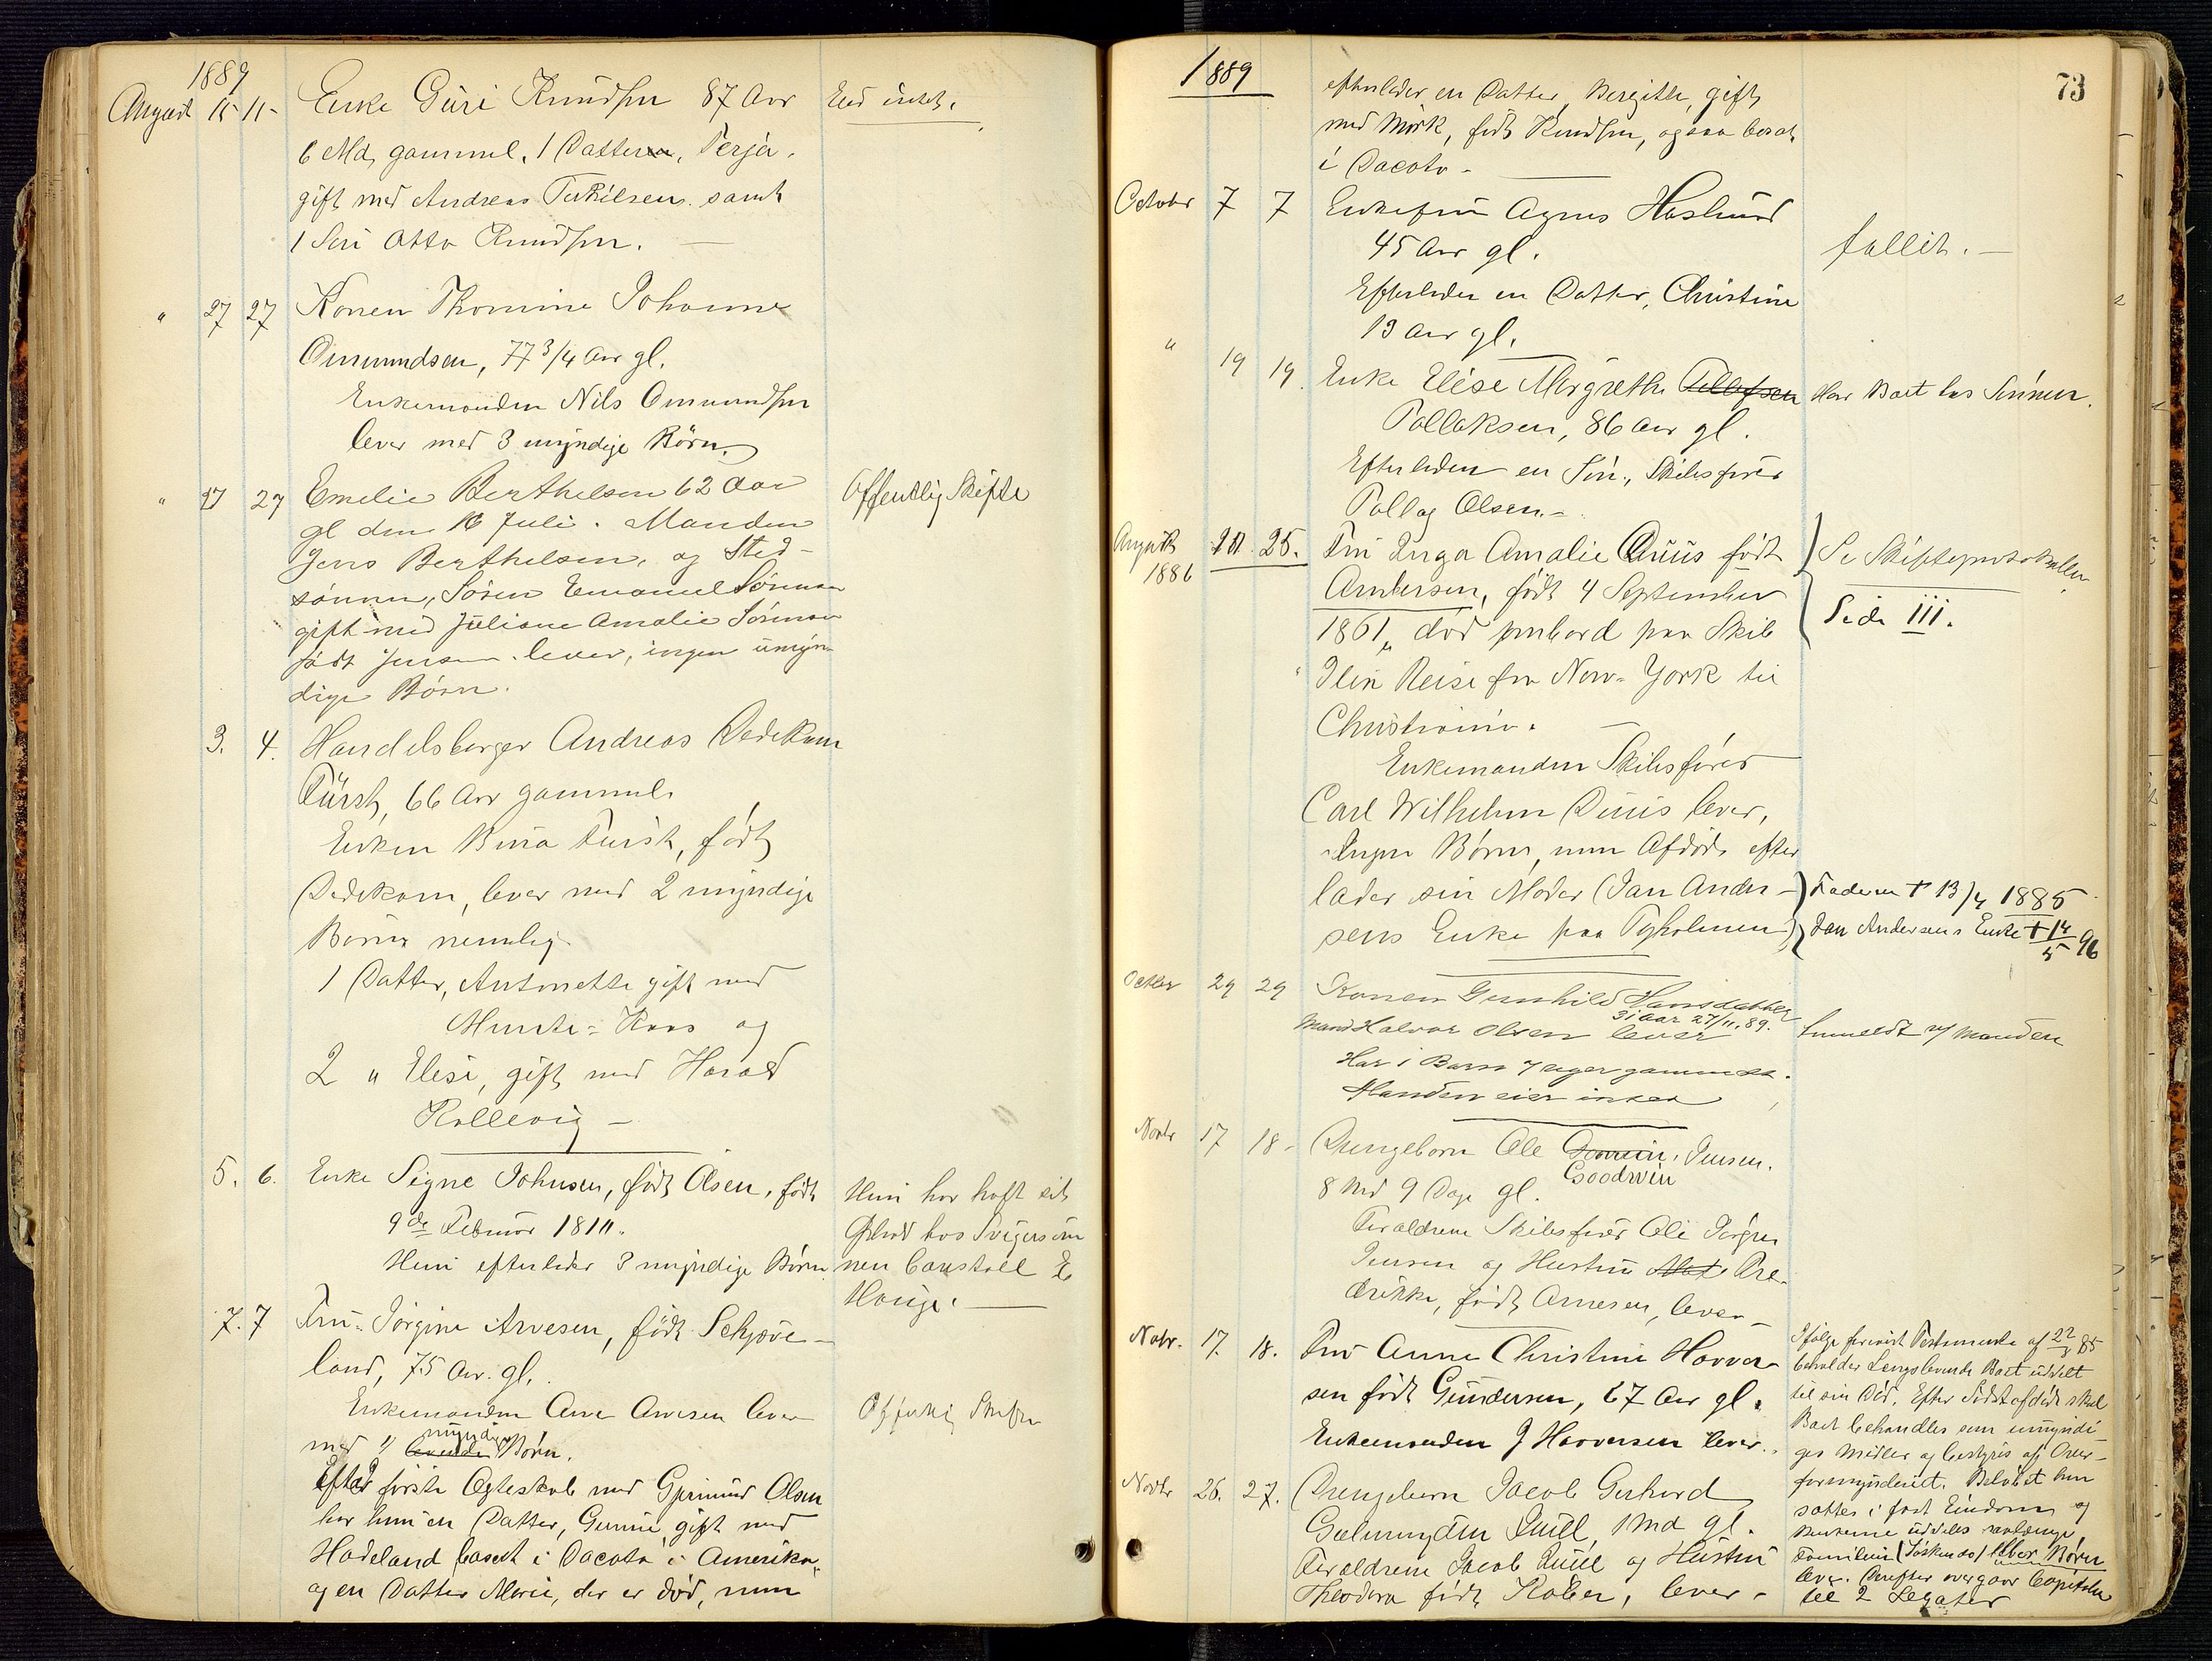 1889
August 15 11- Enke Guri Knudsen 87 Aar Eied intet.
6 Md, gammel. 1 Datter, Terja,
gift med Andreas Terkilsen. samt
1 Søn Otto Knudsen. —
" 27 27 Konen Thomine Johanne
Omundsen, 77 3/4 Aar gl.
Enkemanden Nils Omundsen
lever med 3 myndige Børn.
" 27 27 Emelie Berthelsen 62 Aar Offentlig Skifte
gl den 16 Juli. Manden
Jens Berthelsen, og Sted-
sønnen, Sören Emanuel Sörensen
gift med Juliane Amalie Sörensen
født Jensen. lever, ingen umyn-
dige Börn.
3. 4. Handelsborger Andreas Dedekam
Fürst, 66 Aar gammel.
Enken Bina Fürst, født
Dedekam, lever med 2 myndige
Børn nemlig
1 Datter, Antonette gift med
Munte-Kaas og
2 " Elise, gift med Harald
Kallevig —
5. 6. Enke Signe Johnsen, født Olsen, født Hun har haft sit
9de Februar 1810. Ophold hos Svigersøn
Hun efterlader 3 myndige Børn. nen
Hauge. —
7. 7 Fru Jörgine Arvesen, født Schjøve-
land, 75 Aar. gl,
Enkemanden Arve Arvesen lever Offentlig Skifte
myndige
med levende Børn.
Efter første Ægteskab med Gjermund Olsen
har hun en Datter, Gunnie gift med
Hadeland bosat i Dacota i Amerika,
og en Datter Marie, der er død, men
1889 73
efterlader en Datter, Bergitte, gift
med Mørk, født Knudsen, ogsaa bosat
i Dacota -
October 7 7 Enkefru Agnes Haslund
45 Aar gl. fallit. —
Efterlader en Datter, Christine
13 Aar gl.
" 19 19. Enke Elise Margrethe Tellefsen Har Boet hos Sønnen.
Tallaksen, 86 Aar gl.
Efterlader en Søn, Skibsfører
Tallag Olsen. -
August 20. 25. Fru Inga Amalie Duus født Se Skifteprotokollen
1886 Andersen, født 4 September Side III.
1861, død ombord paa Skib
Reise fra New-York til
Christiania.
Enkemanden Skibsfører
Carl Wilhelm Duus lever,
Ingen Børn, men Afdøde efter
lader sin Moder (Jan Ander- Faderen † 13/4 1885
sens Enke paa Tyholmen) Jan Andersens Enke † 14/5 96
October 29 29 Konen Gunhild Hansdatter
31 Aar 27/11. 89.
Mand Halvor Olsen lever Anmeldt af Manden
Har 1 Barn 7 uger gammel.
Manden eier intet
Novbr 17 18- Drengebarn Ole Jensen.
Goodwin
8 Md 9 Dage gl.
Forældrene Skibsfører Ole Jörgen
Jensen og Hustru Fre-
drikke, født Arnesen, lever -
Novbr. 17. 18. Fru Anne Christine Howar-
sen født Gundersen, 67 Aar gl.
Enkemanden J Hovorsen lever.
Ifølge forevist Testamente af
beholder Længstlevende Boet udelt
til sin Død. Efter Sidstafdøde skal
Boet behandles som umyndi-
ges Midler og bestyres af Over-
formynderiet. Beløbet kan
sættes i fast Eiendom og
Renterne uddeles saalænge
Familien (Søskende) eller Børn
lever. Derefter overgaar Capitalen
til 2 Legater
Novbr 26. 27. Drengebarn Jacob Gerhard
Quill, 1 Md gl.
Forældrene Jacob Quill og Hustru
Theodora født Kaber, lever -